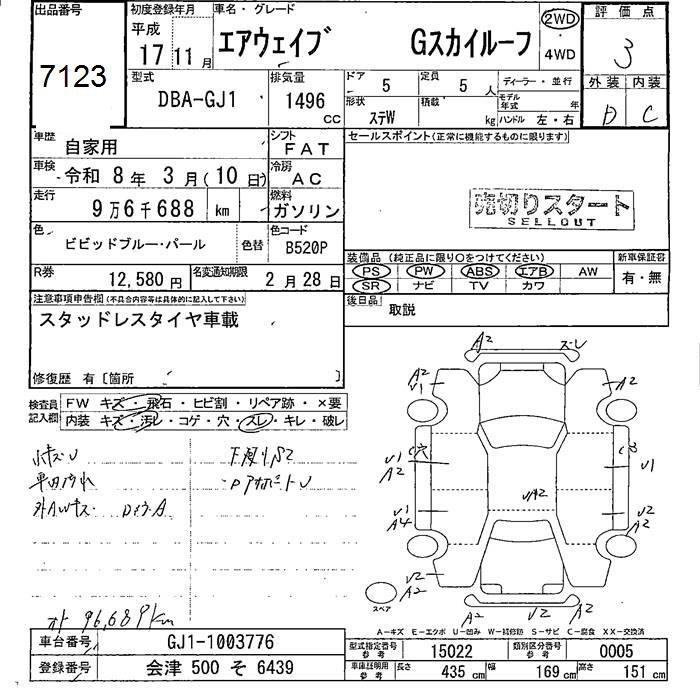 出品番号 初度登録年月 車名・グレード 2WD 評価点
平成 17年 11月 エアウェイブ Gスカイルーフ 4WD 3
7123
型式 排気量 ドア 定員 ディーラー・並行 外装 内装
DBA-GJ1 1496 cc 5 5人 モデル年式 年 D C
形状 ステW 積載 kg ハンドル 左・右
車歴 自家用 シフト FAT セールスポイント(正常に機能するものに限ります)
車検 令和 8年 3月(10日) 冷房 AC
走行 9万6千688 km 燃料 ガソリン 売切りスタート
SELLOUT
色 ビビッドブルー・パール 色替 色コード B520P
装備品(純正品に限り○をつけてください) 新車保証書
R券 12,580円 名変通知期限 2月28日 PS PW ABS エアB AW 有・無
SR ナビ TV カワ
注意事項申告欄(不具合内容等は具体的に記入して下さい) 後日品 取説
スタッドレスタイヤ車載
修復歴 有〔箇所 〕
検査員 FW キズ・飛石・ヒビ割・リペア跡・×要
記入欄 内装 キズ・汚レ・コゲ・穴・スレ・キレ・破レ
A2 スレ
A2 V1 A2
V1 A2 穴 V1
V1 A4 VA2 V2 A2
A2 V2 V2
A2 V2 A2
スペア
96,689km
A-キズ E-エクボ U-凹み W-補修跡 S-サビ C-腐食 XX-交換済
車台番号 GJ1-1003776 型式指定番号 参考 15022 類別区分番号 参考 0005
登録番号 会津 500 そ 6439 車庫証明用 参考 長さ 435cm 幅 169cm 高さ 151cm